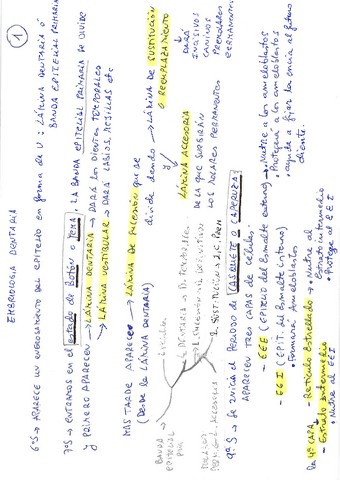 1
EMBRIOLOGIA DENTARIA
6ªS → APARECE UN ENGROSAMIENTO DEL EPITELIO en forma de U: LÁMINA DENTARIA ó
BANDA EPITELIAL PRIMARIA
7ªS → ENTRAMOS EN EL estado de BOTÓN O YEMA. LA BANDA EPITELIAL PRIMARIA SE DIVIDE
y PRIMERO APARECEN → LÁMINA DENTARIA → DARÁ LOS DIENTES TEMPORALES
→ LÁMINA VESTIBULAR → DARÁ LABIOS, MEJILLAS etc
MAS TARDE APARECE → LÁMINA DE SUCESIÓN que se
(Desde la LÁMINA DENTARIA) divide dando → LÁMINA DE SUSTITUCIÓN
O REEMPLAZAMIENTO
↓
DARÁ
INCISIVOS
CANINOS
PREMOLARES
PERMANENTES
LÁMINA ACCESORIA
DE LA QUE SURGIRÁN
LOS MOLARES PERMANENTES
BANDA
EPITELIAL
9ªS → Se inicia el PERIODO de CASQUETE O CAPERUZA:
APARECEN TRES CAPAS de Células:
- EEE (EPITELIO del Esmalte externo) → Nutre a los ameloblastos
• Protegerá a los ameloblastos
• ayuda a fijar la encía al futuro
diente.
- EEI (EPIT. del Esmalte interno)
• Formará Ameloblastos
la 4ª CAPA - Retículo Estrellado → • Nutre al
Estrato intermedio
• Protege al EEI
- Estrato intermedio
• Nutre al EEI